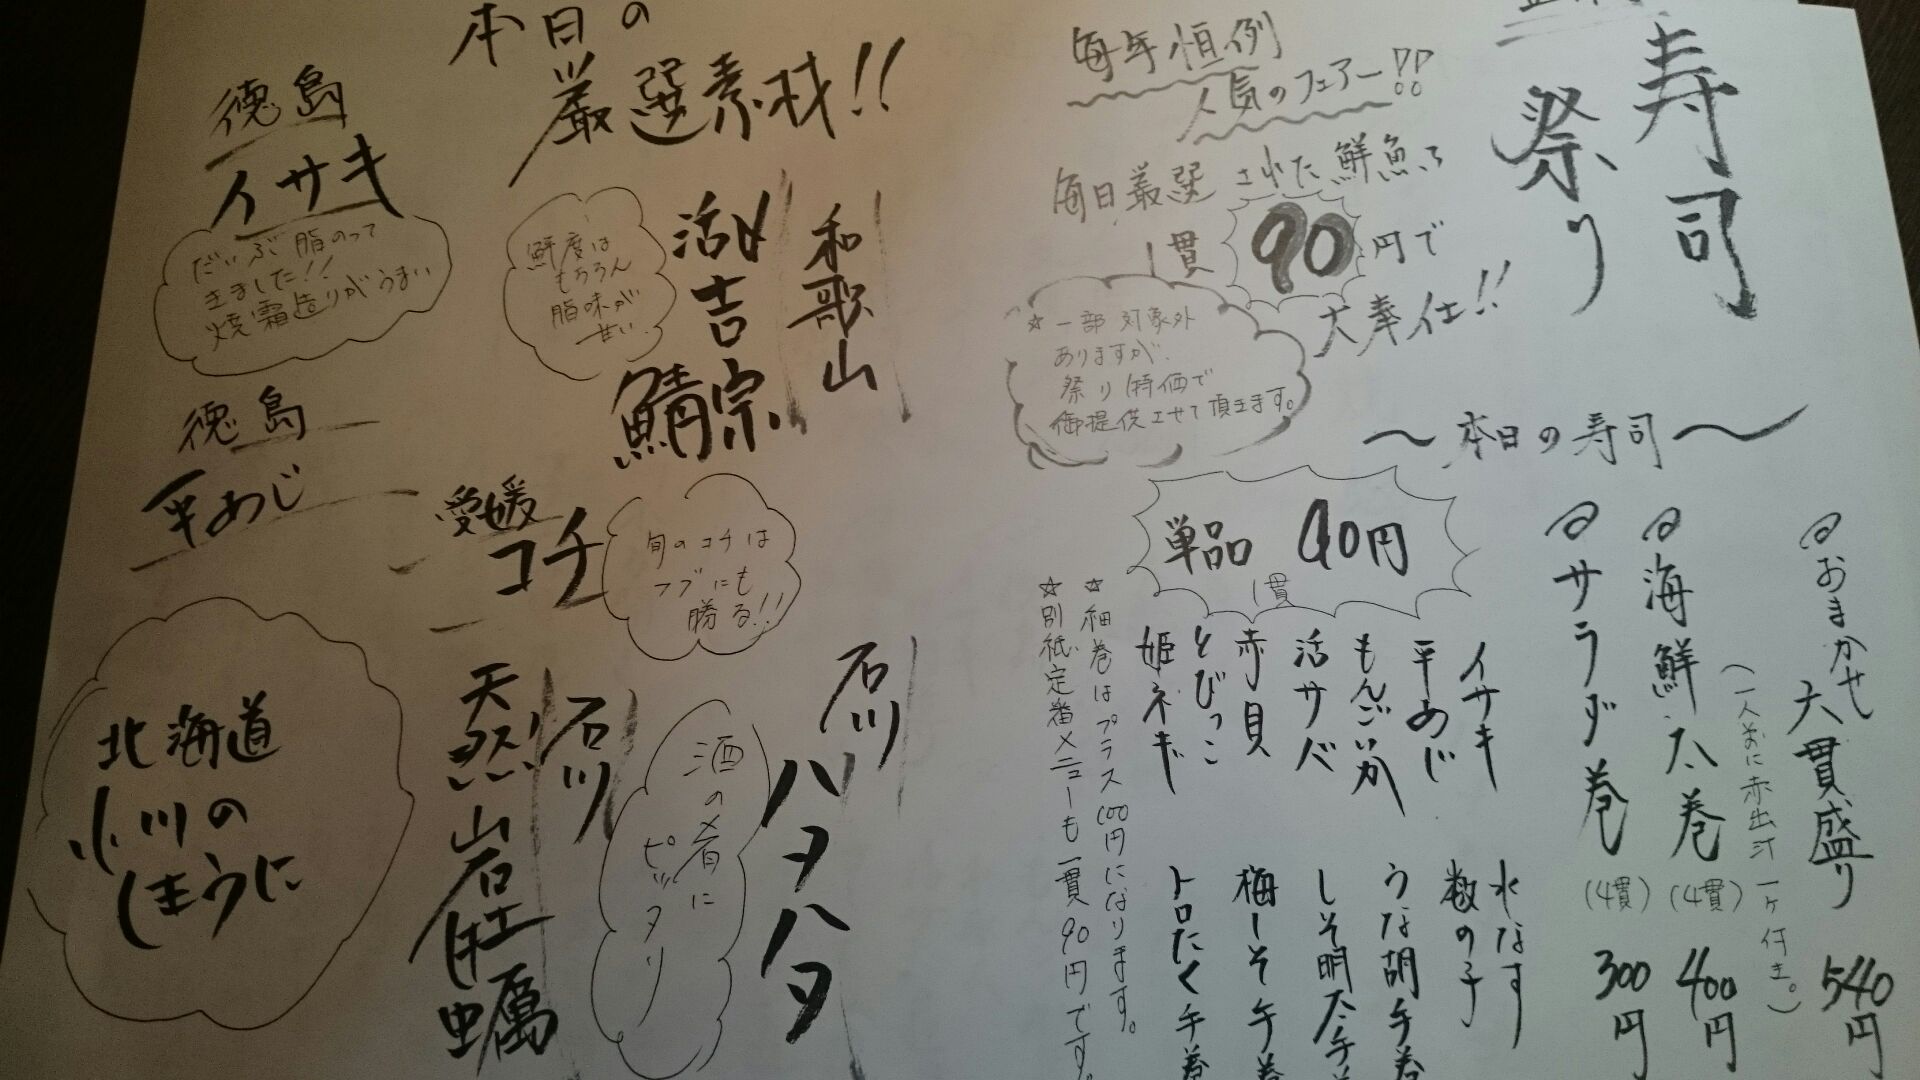 寿司
祭り
毎年恒例
人気のフェアー!!
毎日厳選された鮮魚を
1貫 90円で
大奉仕!!
☆一部対象外
ありますが、
祭り特価で
御提供させて頂きます。
〜本日の寿司〜
おまかせ六貫盛り 540円
(一人前に赤出汁一ケ付き。)
海鮮太巻 (4貫) 400円
サラダ巻 (4貫) 300円
単品 90円
1貫
イサキ
平あじ
もんごいか
活サバ
赤貝
とびっこ
姫ネギ
水なす
数の子
うな胡手巻
しそ明太手巻
梅しそ手巻
トロたく手巻
☆細巻はプラス100円になります。
☆別紙定番メニューも一貫90円です
本日の
厳選素材!!
和歌山
活〆
吉宗
鯖
鮮度は
もちろん
脂味が
甘い
徳島
イサキ
だいぶ脂のって
きました!!
焼霜造りがうまい
徳島
平あじ
愛媛
コチ
旬のコチは
フグにも
勝る!!
石川
ハタハタ
酒の肴に
ピッタリ
石川
天然岩牡蠣
北海道
小川の
しまうに